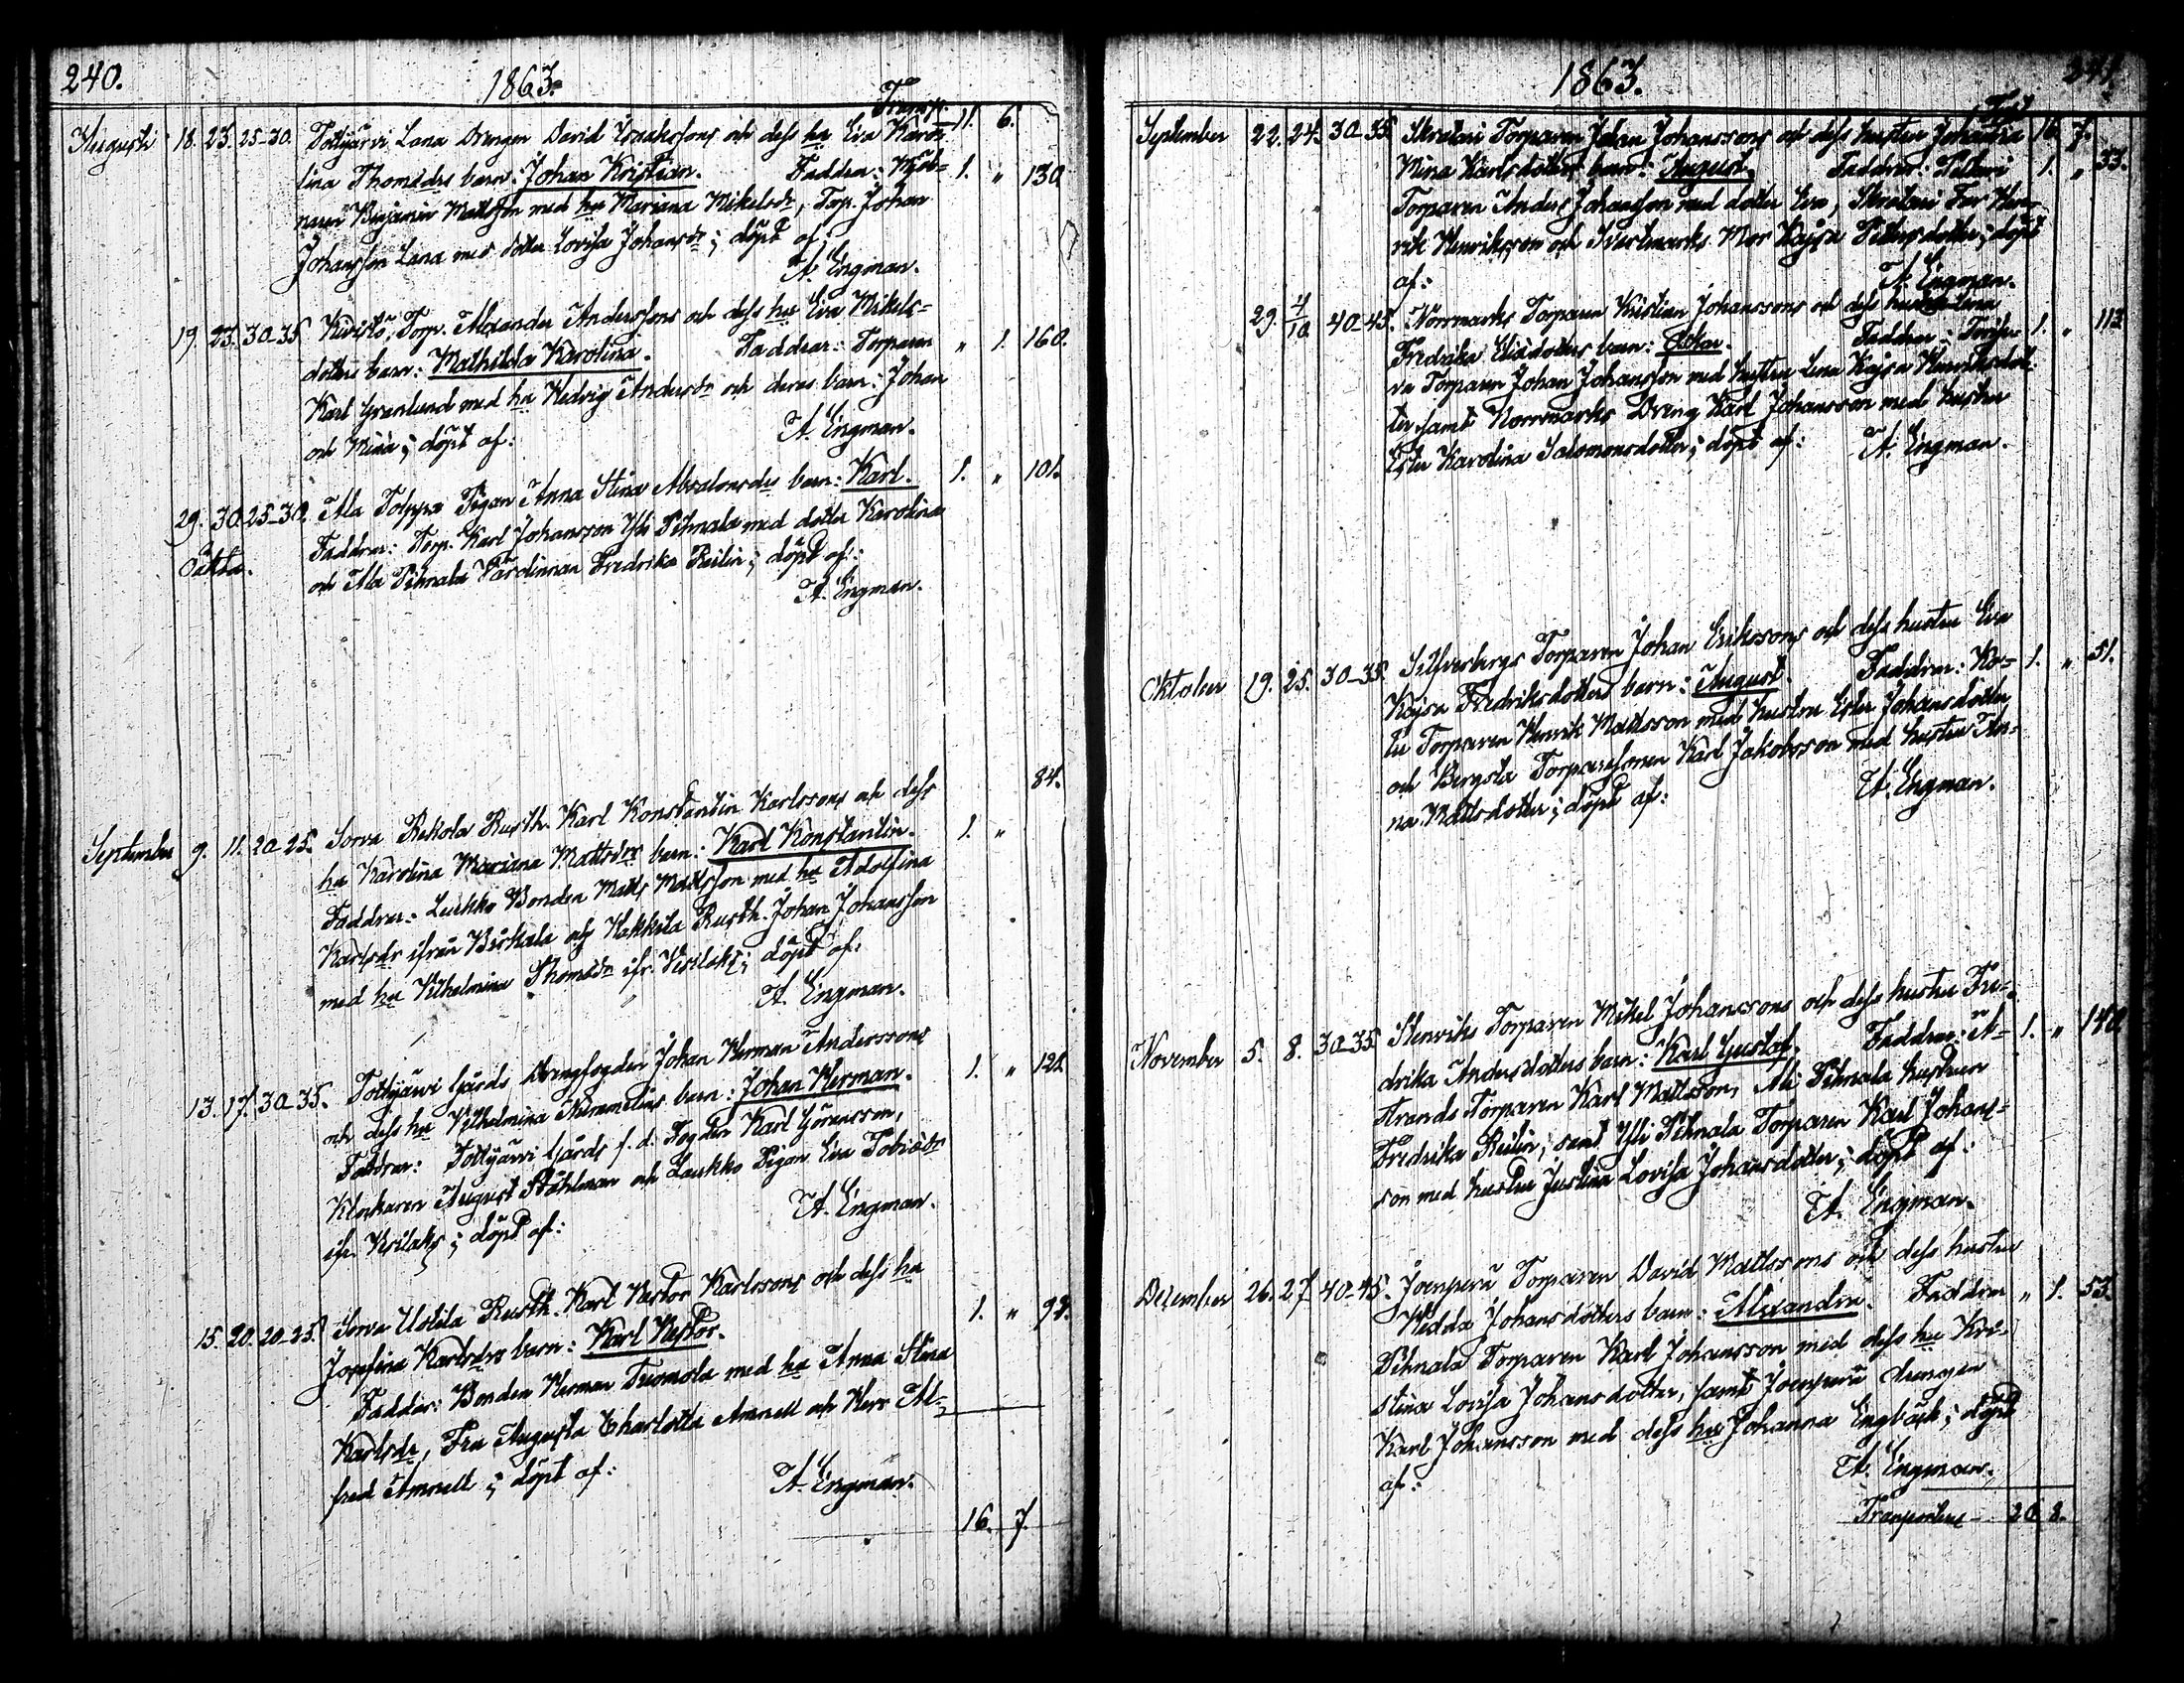 240.
1863.
Transp. 11. 6.
Augusti 18. 23. 25-30. Tottijärvi Lana Drengen David Isaakssons och dess hu Eva Karo-
lina Thomædrs barn: Johan Kristian. Faddrar: 1. " 130
Benjamin Mattsson med hu Mariana Mikelsdr, Torp. Johan
Johansson Lana med dotter Lovisa Johansdr; döpt af:
A. Engman.
19. 23. 30-35 Kuisto, Torp. Alexander Anderssons och dess hu Eva Mikels-
dotters barn: Mathilda Karolina. Faddrar: Torparen " 1. 160.
Karl Grönlund med hu Hedvig Andersdr och deras barn: Johan
och Mina; döpt af: A. Engman.
29. 30. 25-30. Ala Toppa Pigan Anna Stina Absalonsdrs barn: Karl. 1. " 101.
Oäkta. Faddrar: Torp. Karl Johansson Yli Pihnala med dotter Karolina
och Ala Pihnala Värdinnan Fredrika Reilin; döpt af:
A. Engman.
84.
September 9. 11. 20-25. Sorva Rekola Rusth. Karl Konstantin Karlssons och dess
hu Karolina Mariana Mattsdrs barn: Karl Konstantin. 1. "
Faddrar: Laukko Bonden Matts Mattsson med hu Adolfina
Karlsdr ifrån Birkala och Hakkila Rusth. Johan Johansson
med hu Vilhelmina Thomædr ifr. Vesilaks; döpt af:
A. Engman.
13. 17. 30-35. Tottijärvi Gårds Drengfogden Johan Herman Anderssons
och dess hu Vilhelmina Nummelins barn: Johan Herman. 1. " 122
Faddrar: Tottijärvi Gårds f. d. Fogden Karl Göransson,
Klockaren August Ståhlman och Laukko Pigan Eva Tobiædr
ifr. Vesilaks; döpt af: A. Engman.
15. 20. 20-25. Sorva Uotila Rusth. Karl Nestor Karlssons och dess hu
Josefina Karlsdrs barn: Karl Nestor. 1. " 92.
Faddrar: Bonden Herman Tuomola med hu Anna Stina
Karlsdr, Fru Augusta Charlotta Amnell och Herr Al-
fred Amnell; döpt af: A. Engman.
16. 7.
1863.
241.
September 22. 24. 30-35. Skratari Torparen Johan Johanssons och dess hustru Johanna 16. 7.
Mina Karlsdotters barn: August. Faddrar: 1. " 33.
Torparen Anders Johansson med dotter Eva, Skratari Far Hen-
rik Henriksson och Svartmarks Mor Kajsa Petersdotter; döpt
af: A. Engman.
29. 4/10 40-45. Norrmarks Torparen Kristian Johanssons och dess hustru Lena
Fredrika Eliædotters barn: Faddrar: 1. " 113
Torparen Johan Johansson med hustru Lena Kajsa Henriksdot-
ter, samt Norrmarks Dreng Karl Johansson med hustru
Ester Karolina Salomonsdotter; döpt af: A. Engman.
Oktober 19. 25. 30-35. Silfverbergs Torparen Johan Erikssons och dess hustru Eva
Kajsa Fredriksdotters barn: August. Faddrar: Ko- 1. " 51.
Torparen Henrik Mattsson med hustru Ester Johansdotter
och Bergsta Torparesonen Karl Jakobsson med hustru An-
na Mattsdotter; döpt af: A. Engman.
November 5. 8. 30-35. Henriks Torparen Mikel Johanssons och dess hustru Fre-
drika Andersdotters barn: Karl Gustaf. Faddrar: A- 1. " 140
strands Torparen Karl Mattsson, Ali Pihnala hustrun
Fredrika Reilin, samt Yli Pihnala Torparen Karl Johans-
son med hustru Justina Lovisa Johansdotter; döpt af:
A. Engman.
December 26. 27. 40-45. Joenperä Torparen David Mattssons och dess hustru
Hedda Johansdotters barn: Alexandra. Faddrar " 1. 53.
Pihnala Torparen Karl Johansson med dess hu Kri-
stina Lovisa Johansdotter, samt Joenperä drengen
Karl Johansson med dess hu Johanna Engbäck; döpt
af: A. Engman.
Transporteras 20 8.